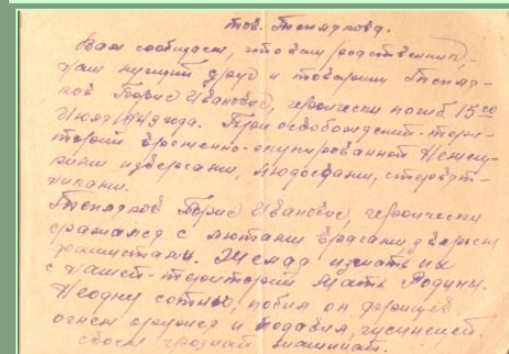 тов. Теплякова.
Вам сообщаем, что ваш родственник,
наш лучший друг и товарищ Тепля-
ков Борис Иванович, героически погиб 15го
Июля 1943 года. При освобождений терри-
торий временно-окупированной немец-
кими извергами, людоедами, стервят-
никами.
Тепляков Борис Иванович, героически
сражался с лютыми врагами
фашистами. изгнать их
с нашей территорий мать Родины.
Неодну сотню, побил он фрицев
огнем орудия и подавил гусеницей
своей грозной машины.